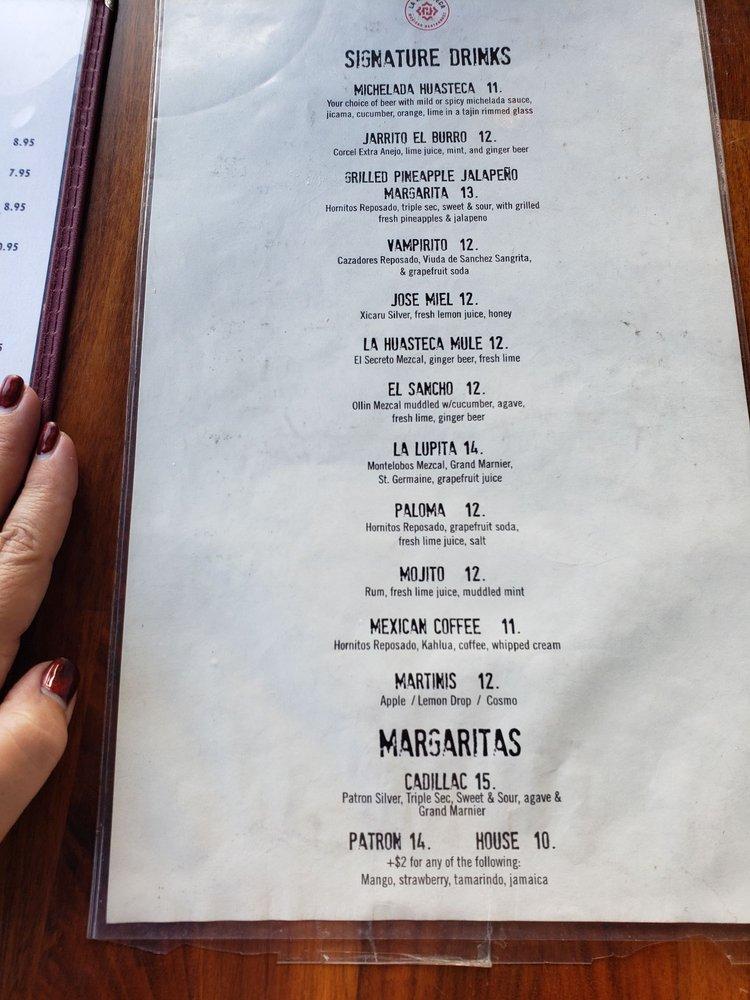 8.95
7.95
8.95
SIGNATURE DRINKS
MICHELADA HUASTECA 11.
Your choice of beer with mild or spicy michelada sauce,
jicama, cucumber, orange, lime in a tajin rimmed glass
JARRITO EL BURRO 12.
Corcel Extra Anejo, lime juice, mint, and ginger beer
GRILLED PINEAPPLE JALAPEÑO
MARGARITA 13.
Hornitos Reposado, triple sec, sweet & sour, with grilled
fresh pineapples & jalapeno
VAMPIRITO 12.
Cazadores Reposado, Viuda de Sanchez Sangrita,
& grapefruit soda
JOSE MIEL 12.
Xicaru Silver, fresh lemon juice, honey
LA HUASTECA MULE 12.
El Secreto Mezcal, ginger beer, fresh lime
EL SANCHO 12.
Ollin Mezcal muddled w/cucumber, agave,
fresh lime, ginger beer
LA LUPITA 14.
Montelobos Mezcal, Grand Marnier,
St. Germaine, grapefruit juice
PALOMA 12.
Hornitos Reposado, grapefruit soda,
fresh lime juice, salt
MOJITO 12.
Rum, fresh lime juice, muddled mint
MEXICAN COFFEE 11.
Hornitos Reposado, Kahlua, coffee, whipped cream
MARTINIS 12.
Apple / Lemon Drop / Cosmo
MARGARITAS
CADILLAC 15.
Patron Silver, Triple Sec, Sweet & Sour, agave &
Grand Marnier
PATRON 14. HOUSE 10.
+$2 for any of the following:
Mango, strawberry, tamarindo, jamaica